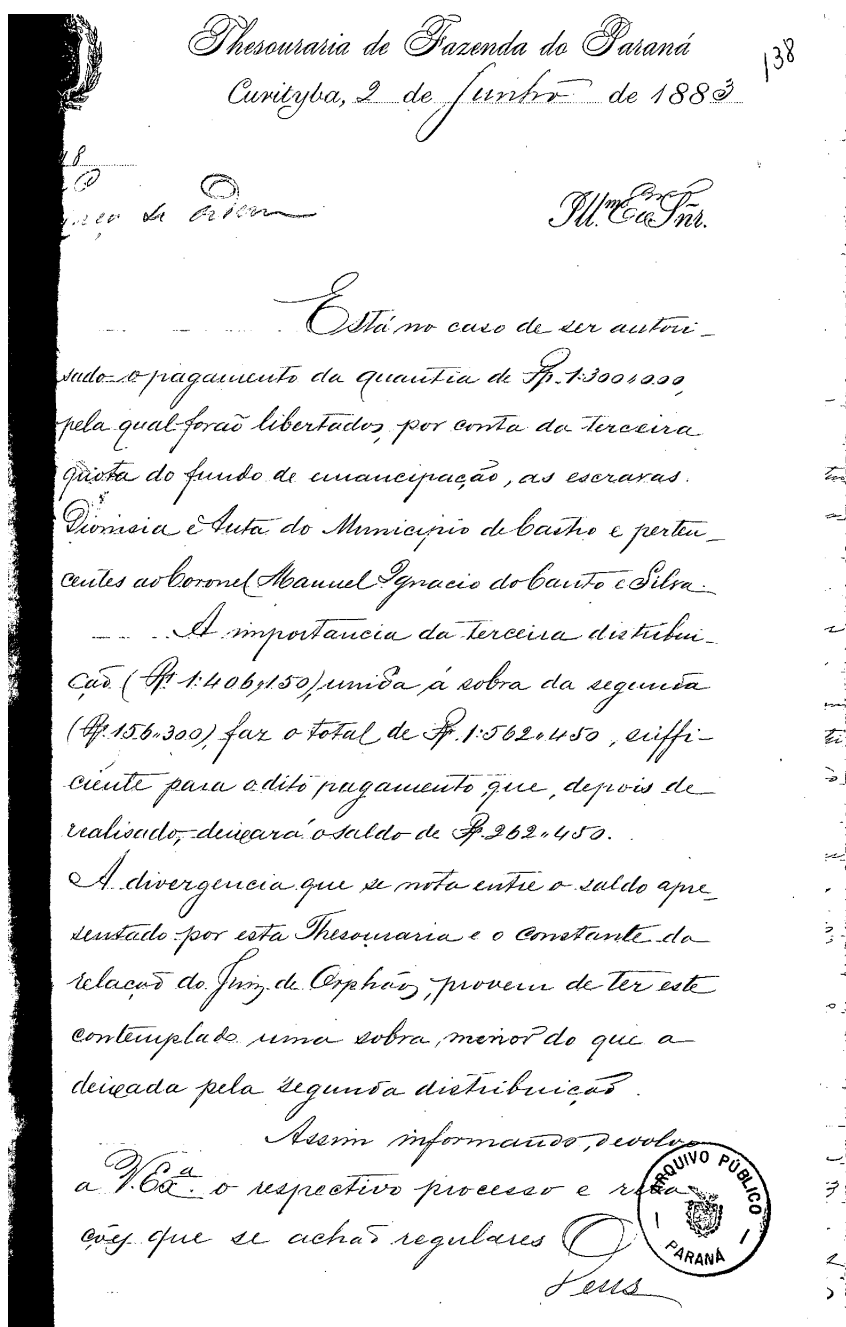 Thesouraria de Fazenda do Paraná
138
Curityba, 2 de Junho de 1883
de ordem
Ill.mo Exmo Sñr.
Está no caso de ser autori-
sado o pagamento da quantia de Rs. 1:300,000,
pela qual forão libertados, por conta da terceira
quota do fundo de emancipação, as escravas
Dionisia e Auta do Municipio de Castro e perten-
centes ao Coronel Manuel Ignacio do Canto e Silva.
A importancia da terceira distribui-
ção (Rs. 1:406,150), unida á sobra da segunda
(Rs. 156,300), faz o total de Rs. 1:562,450, suffi-
ciente para o dito pagamento que, depois de
realisado, deixará o saldo de Rs. 262,450.
A divergencia que se nota entre o saldo apre-
sentado por esta Thesouraria e o constante da
relação do Juiz de Orphãos, provem de ter este
contemplado uma sobra menor do que a
deixada pela segunda distribuição.
Assim informando, devolvo
a V. Exa. o respectivo processo e rela
ções que se achão regulares
Deus
ARQUIVO PÚBLICO
PARANÁ